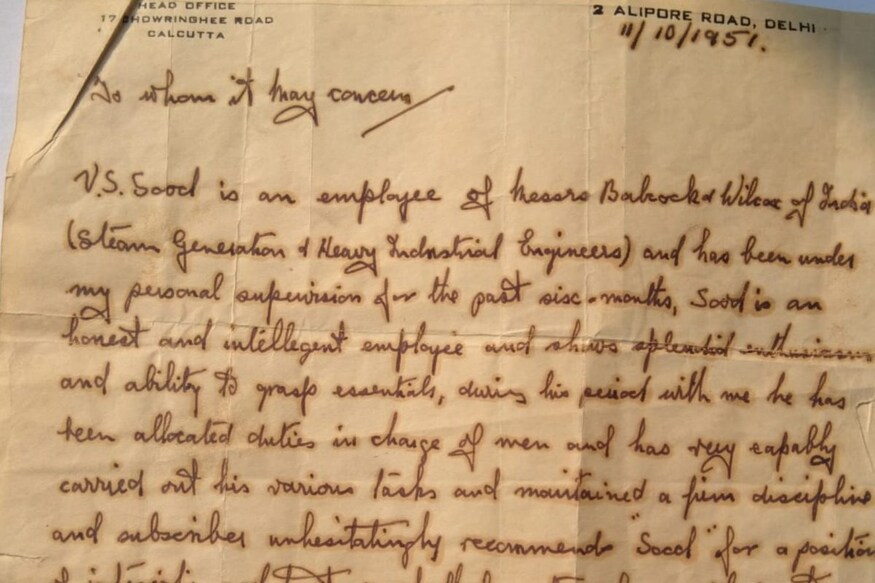 HEAD OFFICE
17 CHOWRINGHEE ROAD
CALCUTTA
2 ALIPORE ROAD, DELHI
11/10/1951.
To whom it May concern
V.S. Sood is an employee of Messrs Babcock & Wilcox of India
(Steam Generation & Heavy Industrial Engineers) and has been under
my personal supervision for the past six-months, Sood is an
honest and intellegent employee and shows splendid enthusiasm
and ability to grasp essentials, during his period with me he has
been allocated duties in charge of men and has very capably
carried out his various tasks and maintained a firm discipline
and subscriber unhesitatingly recommends "Sood" for a position